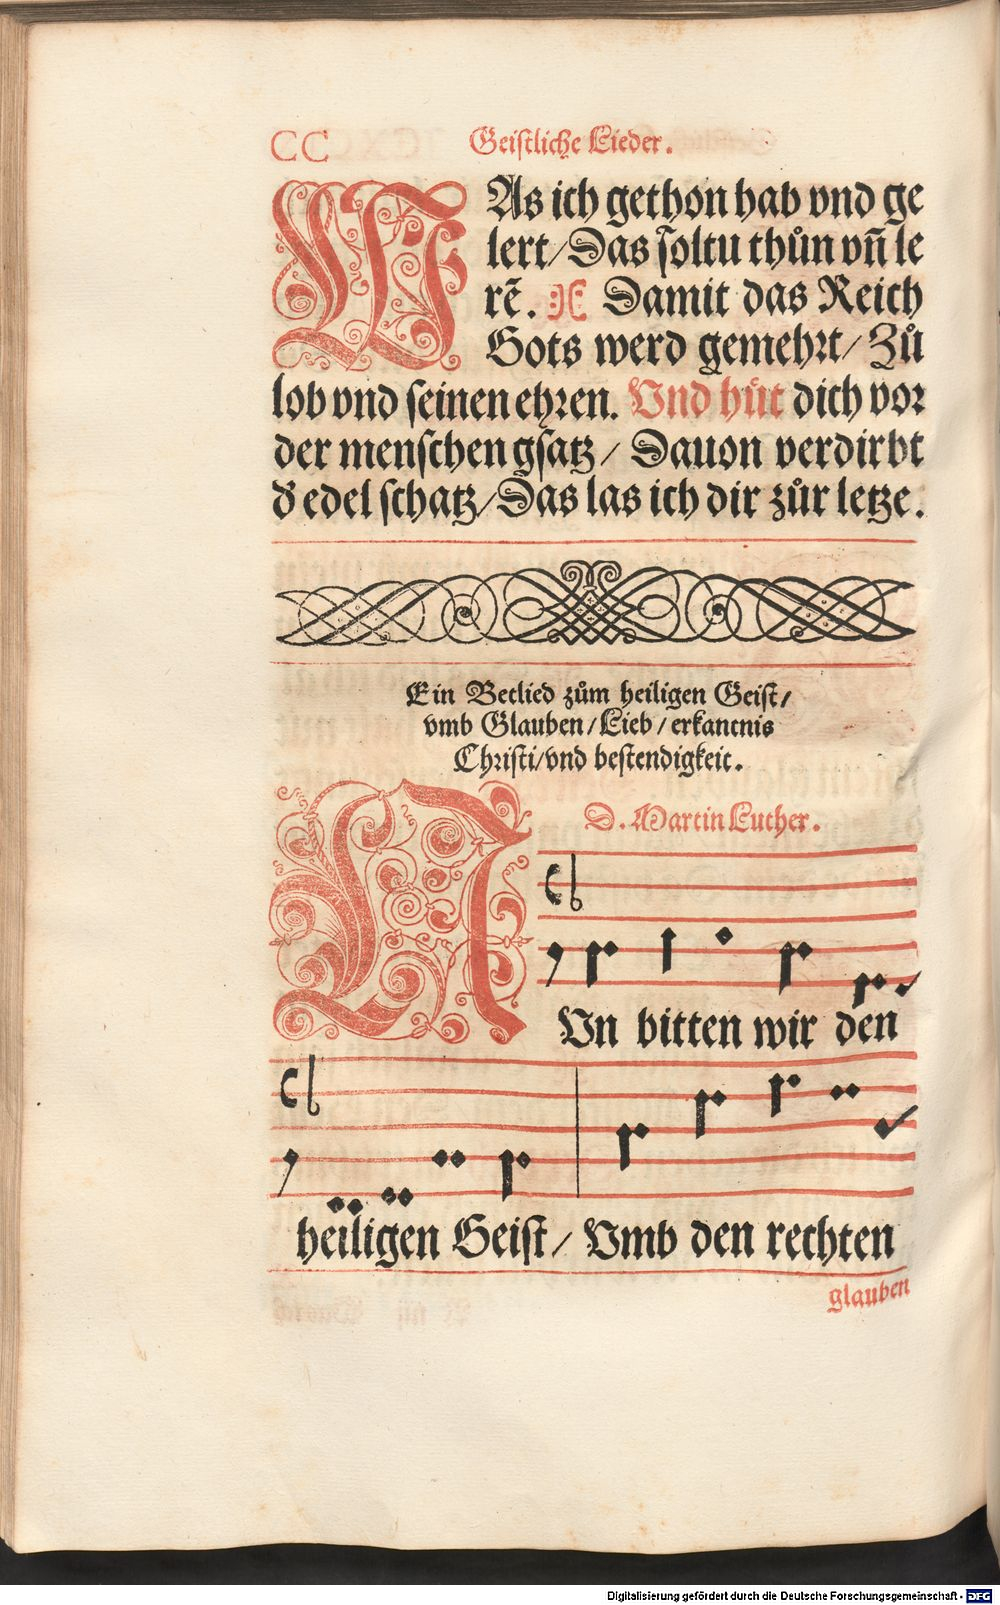 CC Geistliche Lieder.
WAs ich gethon hab vnd ge
lert/Das soltu thůn vn̄ le
rē. Damit das Reich
Gots werd gemehrt/Zů
lob vnd seinen ehren. Vnd hůt dich vor
der menschen gsatz/Dauon verdirbt
d' edel schatz/Das las ich dir zůr letze.
Ein Betlied zům heiligen Geist/
vmb Glauben/Lieb/erkantnis
Christi/vnd bestendigkeit.
D. Martin Luther.
NVn bitten wir den
heiligen Geist/Vmb den rechten
glauben
Digitalisierung gefördert durch die Deutsche Forschungsgemeinschaft - DFG